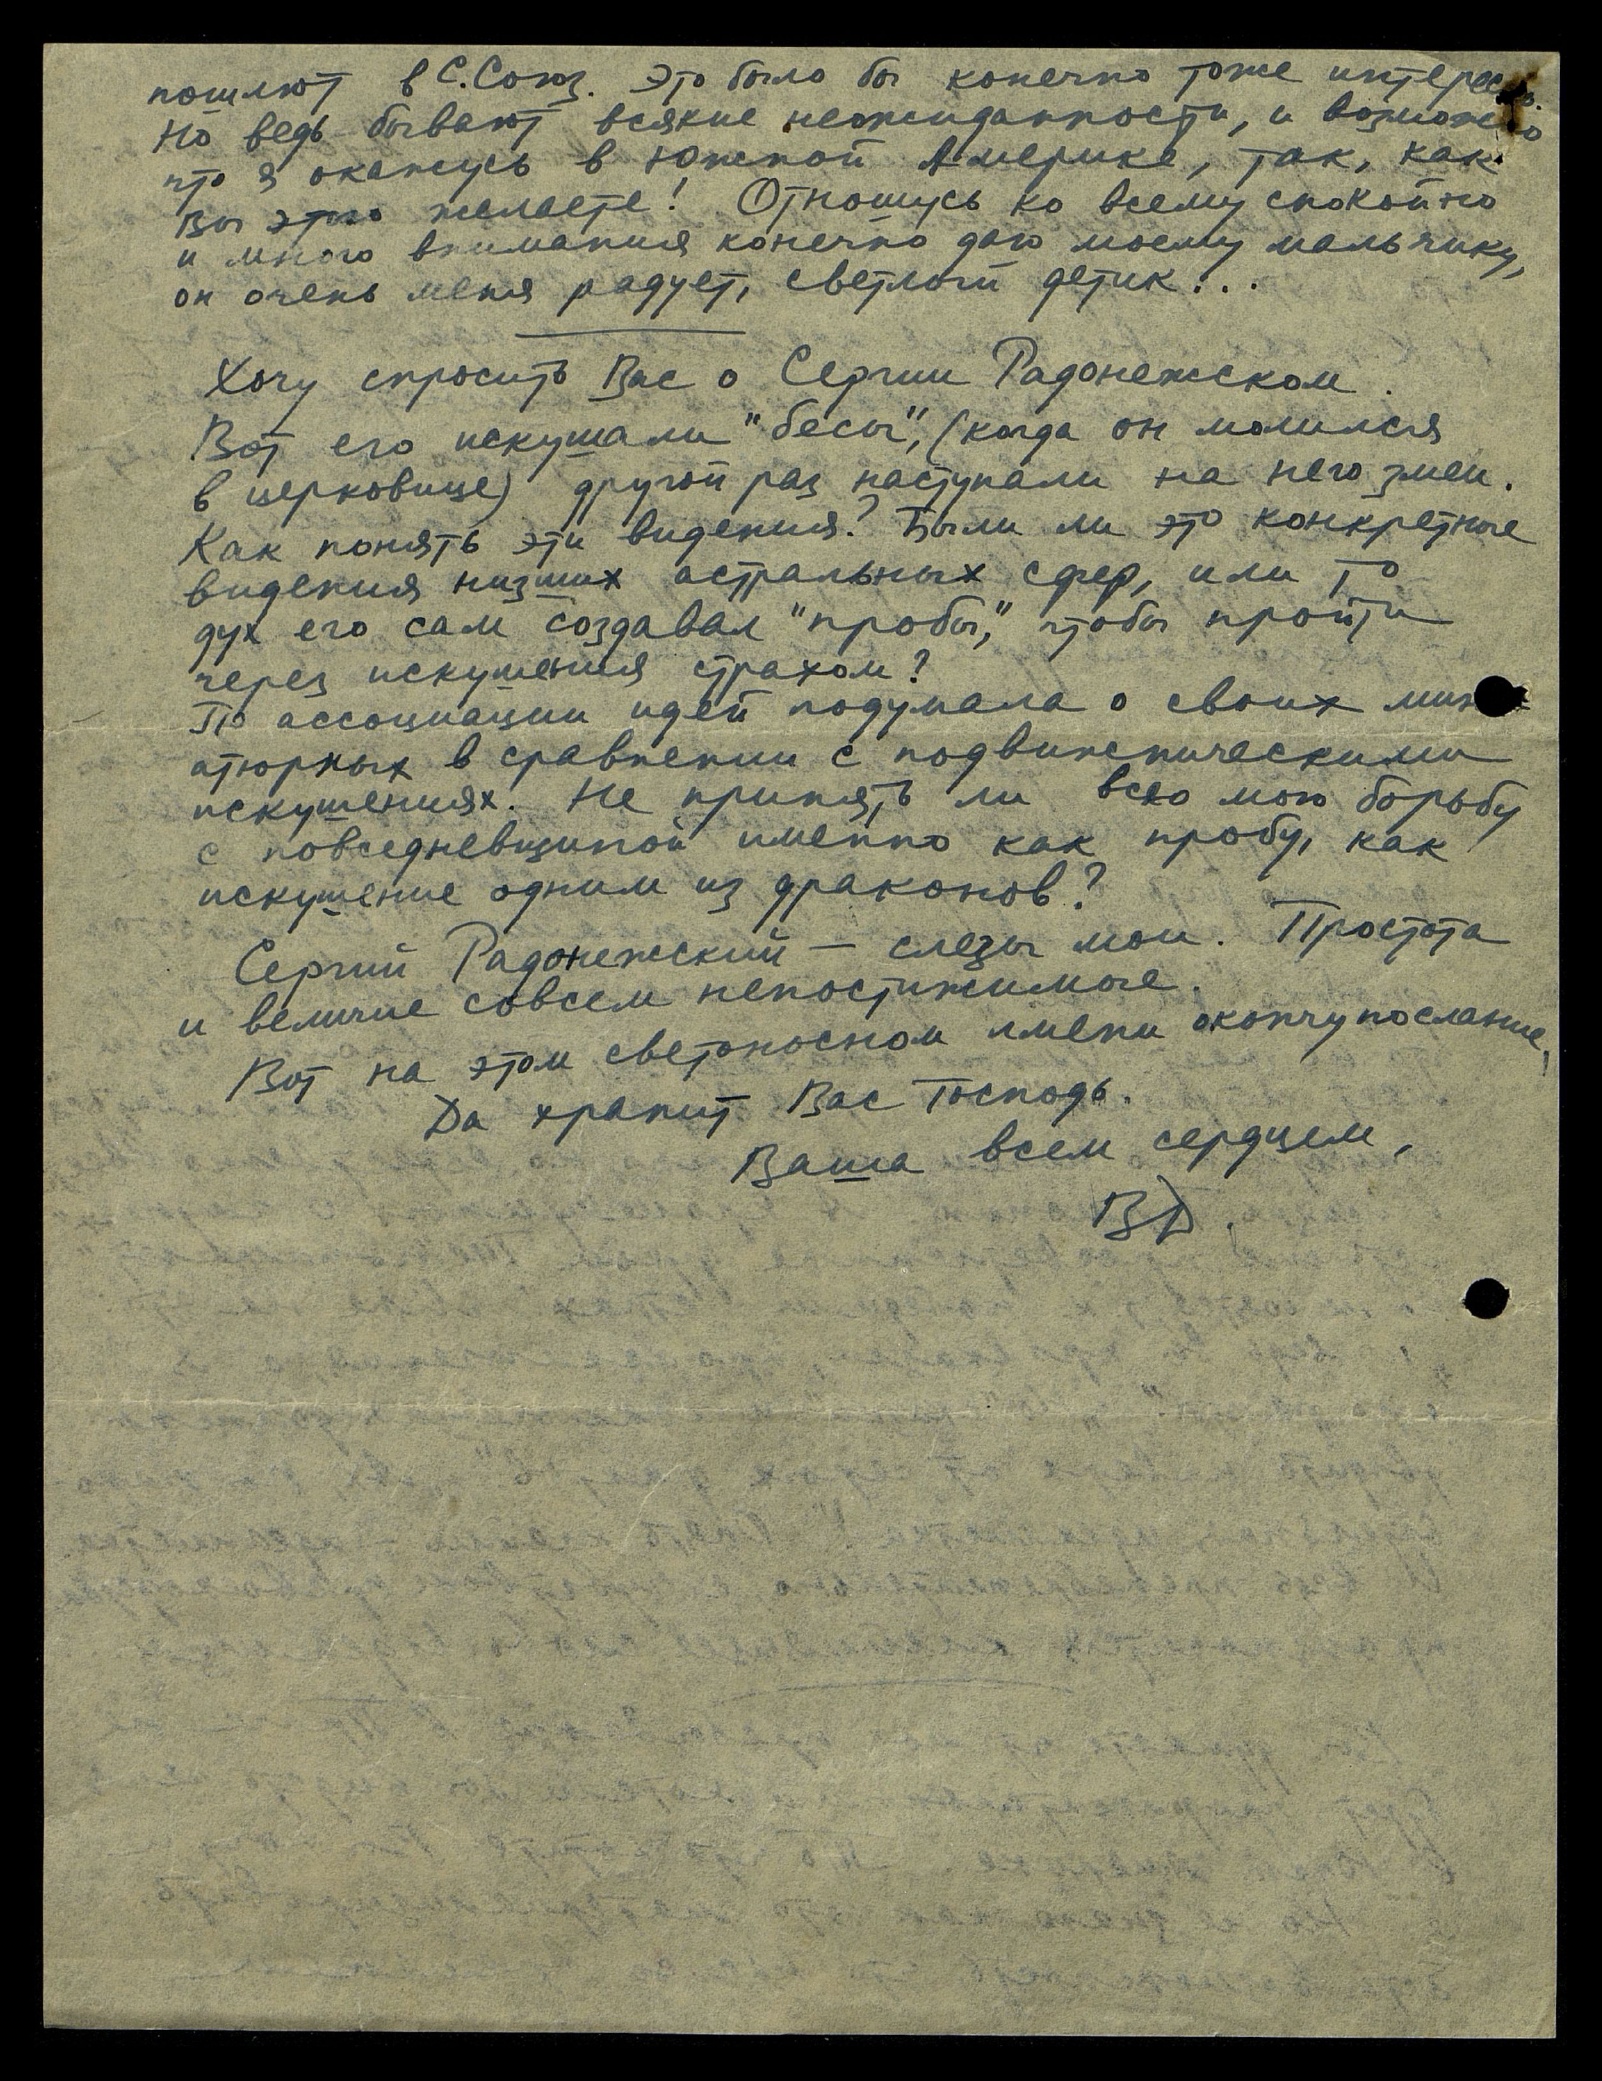 пошлют в С.Союз. Это было бы конечно тоже интересно.
Но ведь бывают всякие неожиданности, и возможно
что я окажусь в Южной Америке, так, как
Вы этого желаете! Отношусь ко всему спокойно
и много внимания конечно даю моему мальчику,
он очень меня радует, светлый детик...
Хочу спросить Вас о Сергии Радонежском.
Вот его искушали "бесы", (когда он молился
в церковице) другой раз наступали на него змеи.
Как понять эти видения? Были ли это конкретные
видения низших астральных сфер, или то
дух его сам создавал "пробы," чтобы пройти
через искушения страхом?
По ассоциации идей подумала о своих мини
атюрных в сравнении с подвижническими
искушениях. Не принять ли всю мою борьбу
с повседневщиной именно как пробу, как
искушение одним из драконов?
Сергий Радонежский — слезы мои. Простота
и величие совсем непостижимые.
Вот на этом светоносном имени окончу послание,
Да хранит Вас Господь.
Ваша всем сердцем,
ВД.